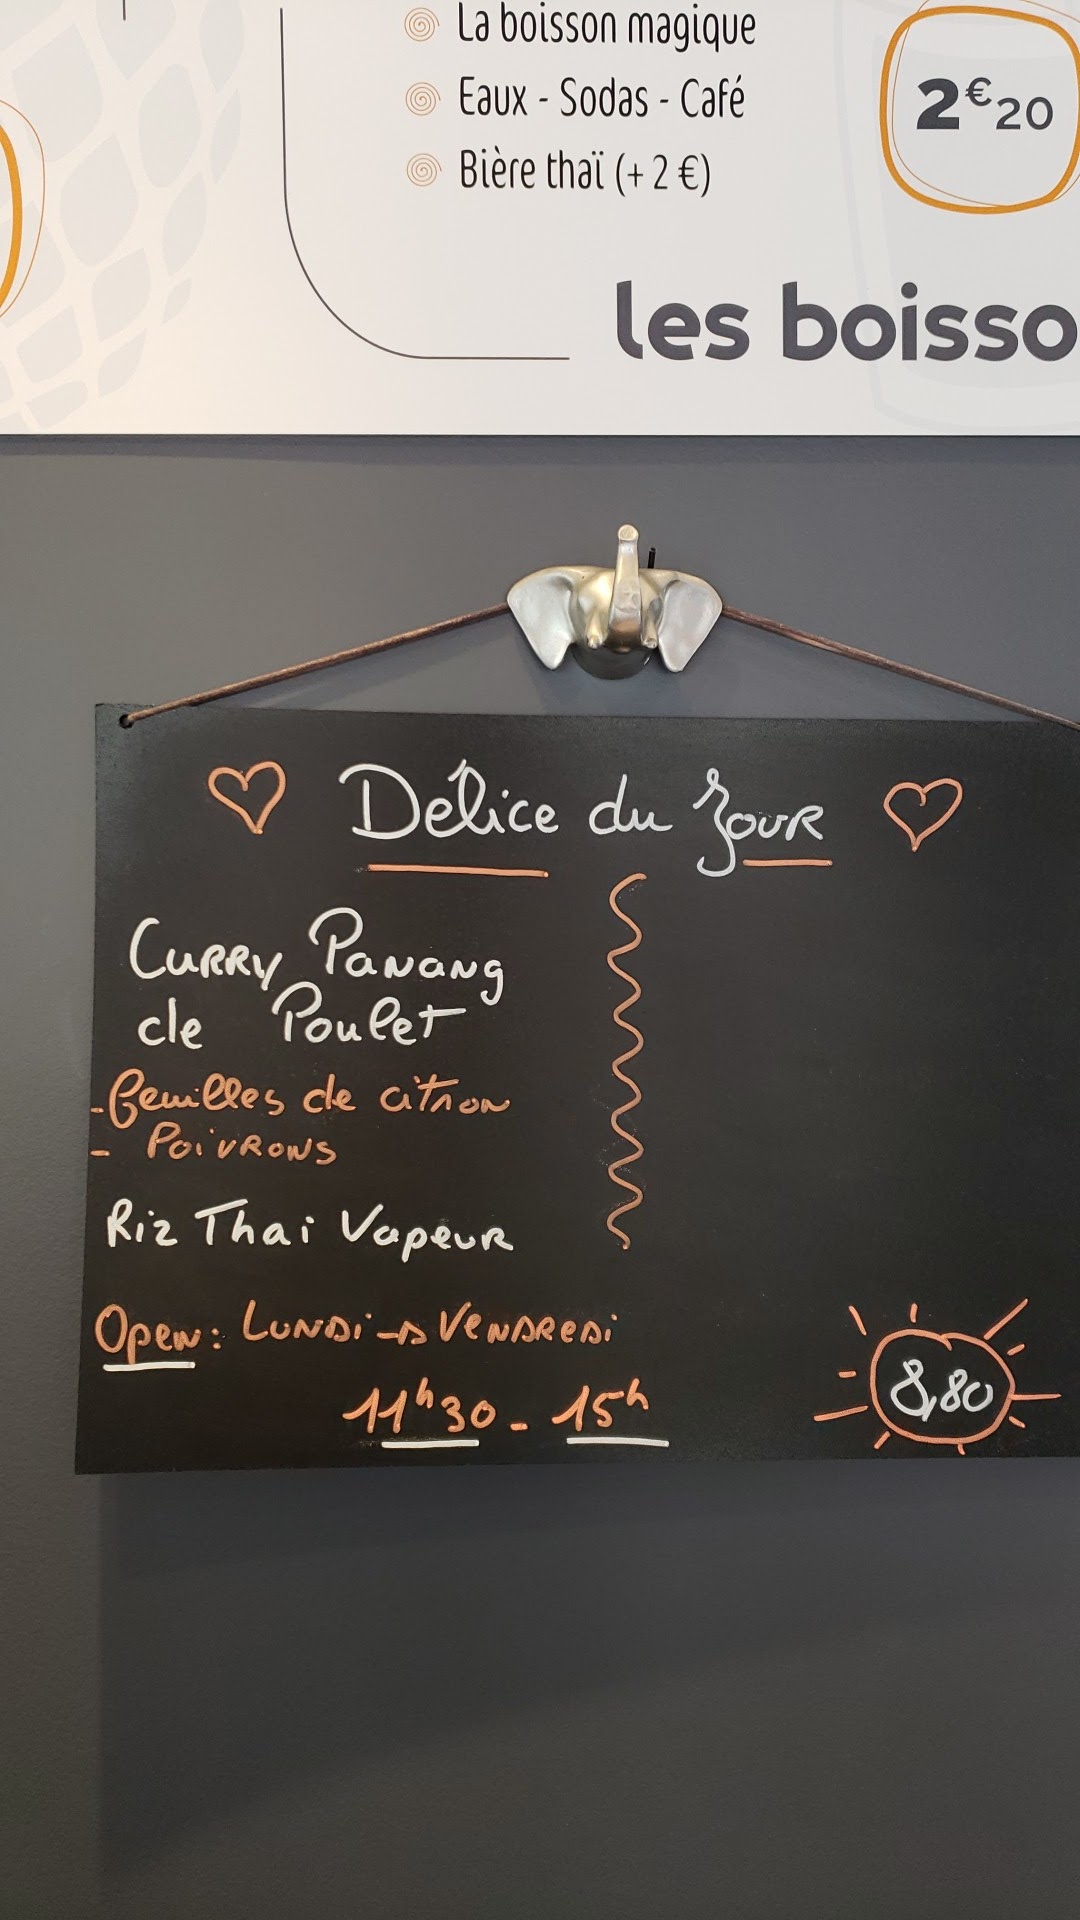 La boisson magique
Eaux - Sodas - Café
Bière thaï (+ 2 €)
2€20
les boisso
Délice du Jour
Curry Panang
de Poulet
- feuilles de citron
- Poivrons
Riz Thai Vapeur
Open: Lundi → Vendredi
11h30 - 15h
8,80